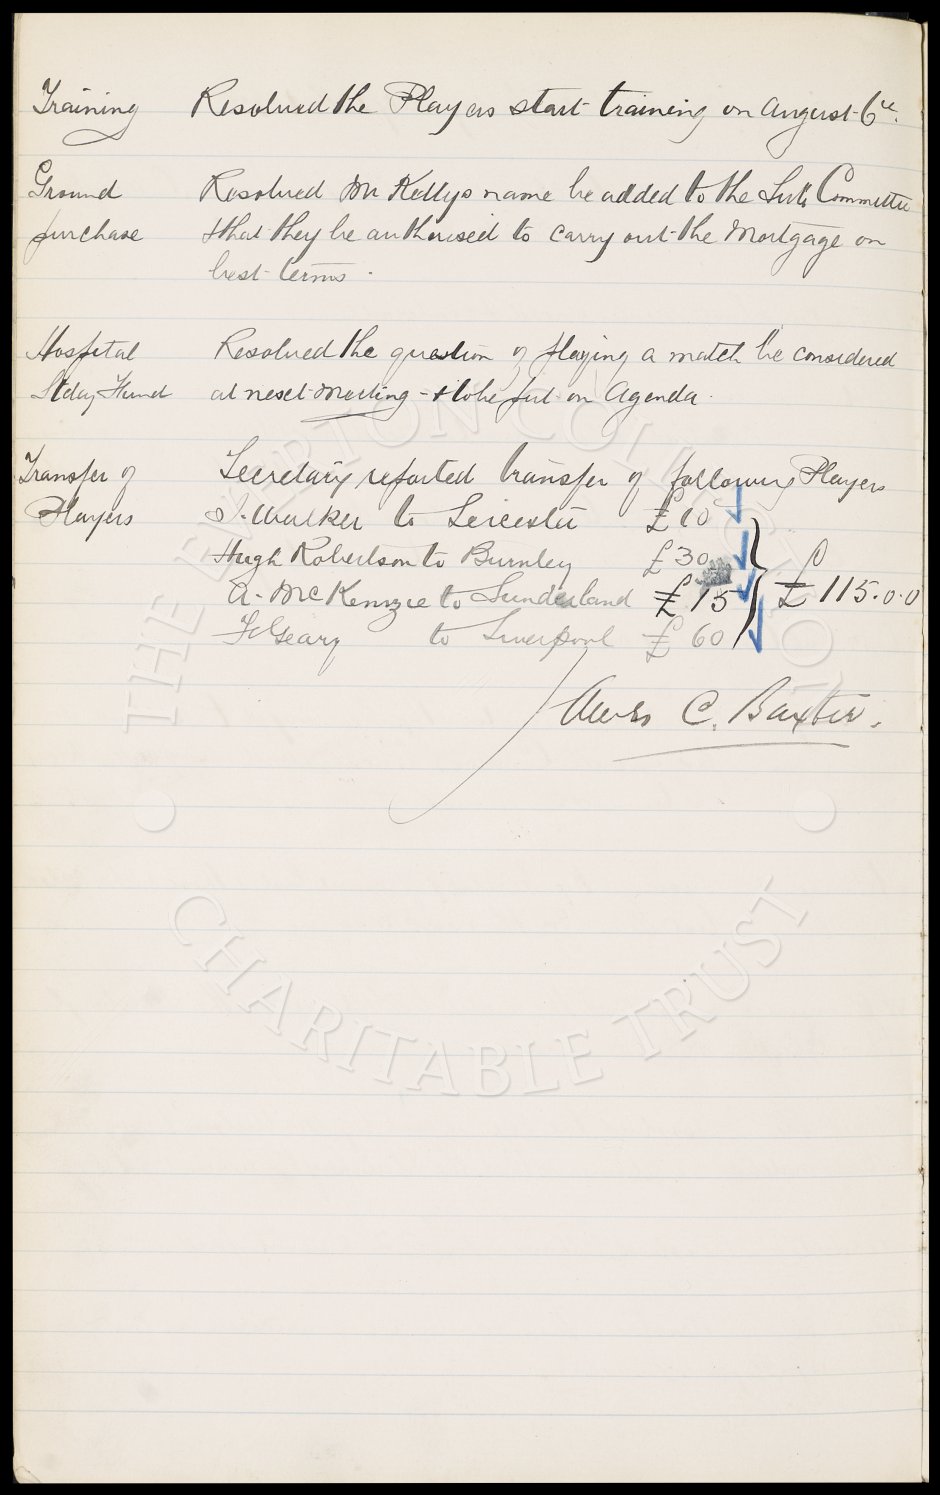 Training Resolved the Players start training on August 6th.
Ground Resolved Mr Kellys name be added to the Sub Committee
purchase & that they be authorised to carry out the Mortgage on
best terms.
Hospital Resolved the question of playing a match be considered
Stday Fund at next meeting - & to be put on Agenda.
Transfer of Secretary reported transfer of following Players
Players J. Walker to Leicester £10
Hugh Robertson to Burnley £30
A. McKenzie to Sunderland £15 £115.0.0
F Geary to Liverpool £60
James C. Baxter.
THE EVERTON COLLECTION
CHARITABLE TRUST